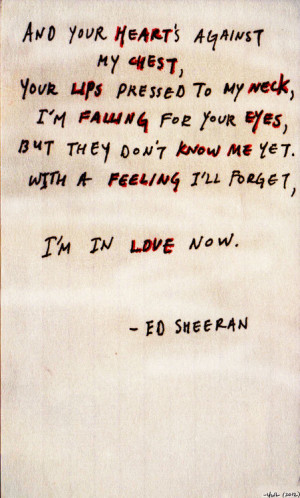 AND YOUR HEART'S AGAINST
MY CHEST,
YOUR LIPS PRESSED TO MY NECK,
I'M FALLING FOR YOUR EYES,
BUT THEY DON'T KNOW ME YET.
WITH A FEELING I'LL FORGET,
I'M IN LOVE NOW.
- ED SHEERAN
(2012)